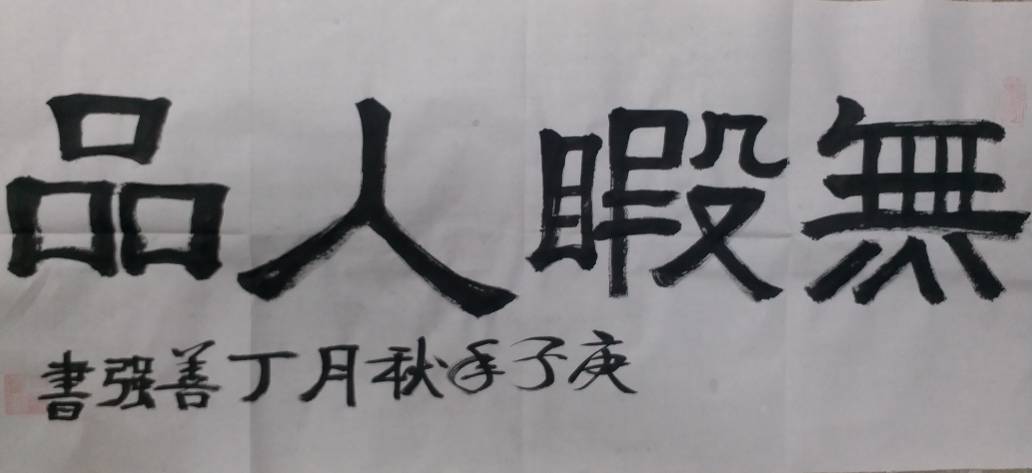 無暇人品
庚子年秋月丁善强書